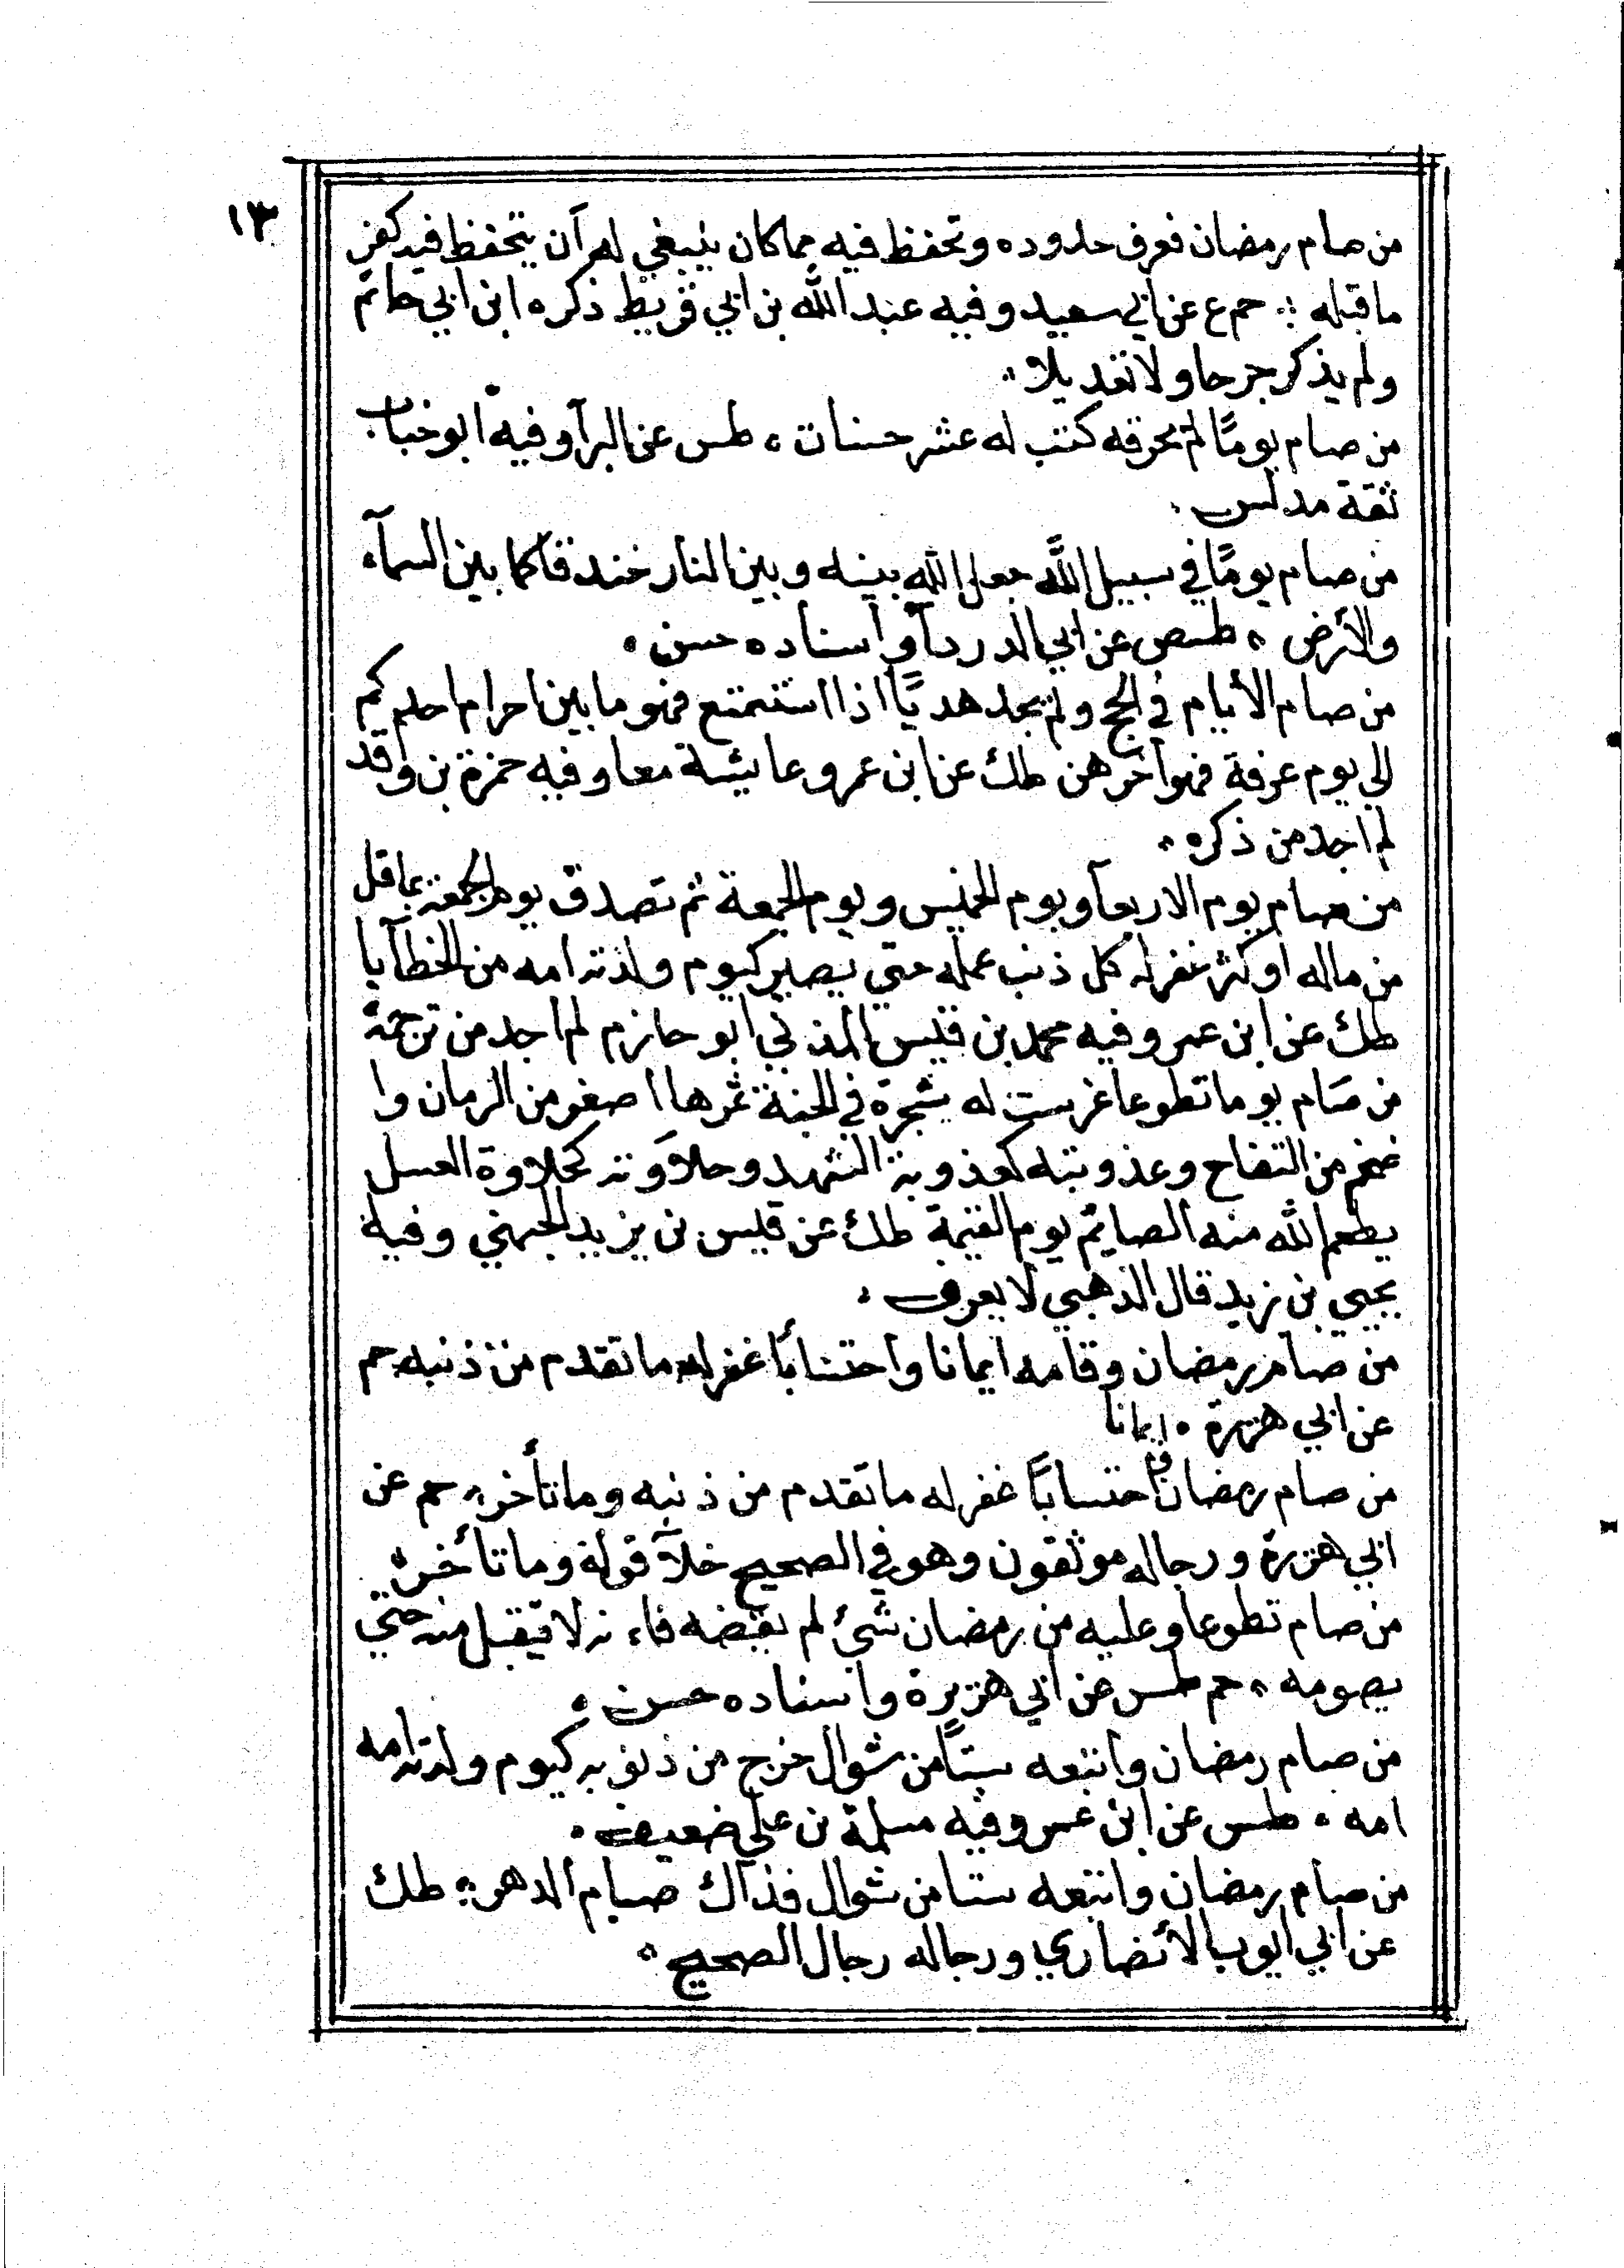 ١٣
من صام رمضان فعرف حدوده وتحفظ فيه مما كان ينبغي له ان يتحفظ فيه كفر
ما قبله ؛ حم ع عن ابي سعيد وفيه عبد الله بن ابي قريط ذكره ابن ابي حاتم
ولم يذكر جرحا ولا تعديلا
من صام يومًا لم يخرقه كتب له عشر حسنات ، طس عن البرآ وفيه ابو خباب
ثقة مدلس .
من صام يومًا في سبيل الله جعل الله بينه وبين النار خندقا كما بين السمآء
والأرض ، طسص عن ابي الدردآ واسناده حسن ،
من صام الأيام في الحج ولم يجد هديًا اذا استمتع فهو ما بين احرام احدكم
الي يوم عرفة فهو آخرهن طك عن ابن عمر وعايشة معا وفيه حمزة بن وقد
لم اجد من ذكره ،
من صام يوم الاربعآ ويوم الخميس ويوم الجمعة ثم تصدق يوم الجمعة بما قل
من ماله او كثر غفر له كل ذنب عمله حتي يصير كيوم ولدته امه من الخطآيا
طك عن ابن عمر وفيه محمد بن قيس المدني ابو حازم لم اجد من ترجمه
من صام يوما تطوعا غرست له شجرة في الجنة ثمرها اصغر من الرمان وا
ضخم من التفاح وعذوبته كعذوبة الشهد وحلاوته كحلاوة العسل
يطعم الله منه الصايم يوم القيمة طك عن قيس بن يزيد الجهني وفيه
يحيي بن زيد قال الذهبي لا يعرف ،
من صام رمضان وقامه ايمانا واحتسابًا غفر له ما تقدم من ذنبه حم
عن ابي هريرة ، ايمانا
من صام رمضان واحتسابًا غفر له ما تقدم من ذنبه وما تأخر ؛ حم عن
ابي هريرة ورجاله موثقون وهو في الصحيح خلا قوله وما تأخر ؛
من صام تطوعا وعليه من رمضان شئ لم يقضه فاء نه لا يتقبل منه حتي
يصومه ، حم طس عن ابي هريرة واسناده حسن ،
من صام رمضان واتبعه ستًا من شوال خرج من ذنوبه كيوم ولدته امه
امه ، طس عن ابن عمر وفيه مسلمة بن علي ضعيف ،
من صام رمضان واتبعه ستا من شوال فذاك صيام الدهر ؛ طك
عن ابي ايوب الأنصاري ورجاله رجال الصحيح ،